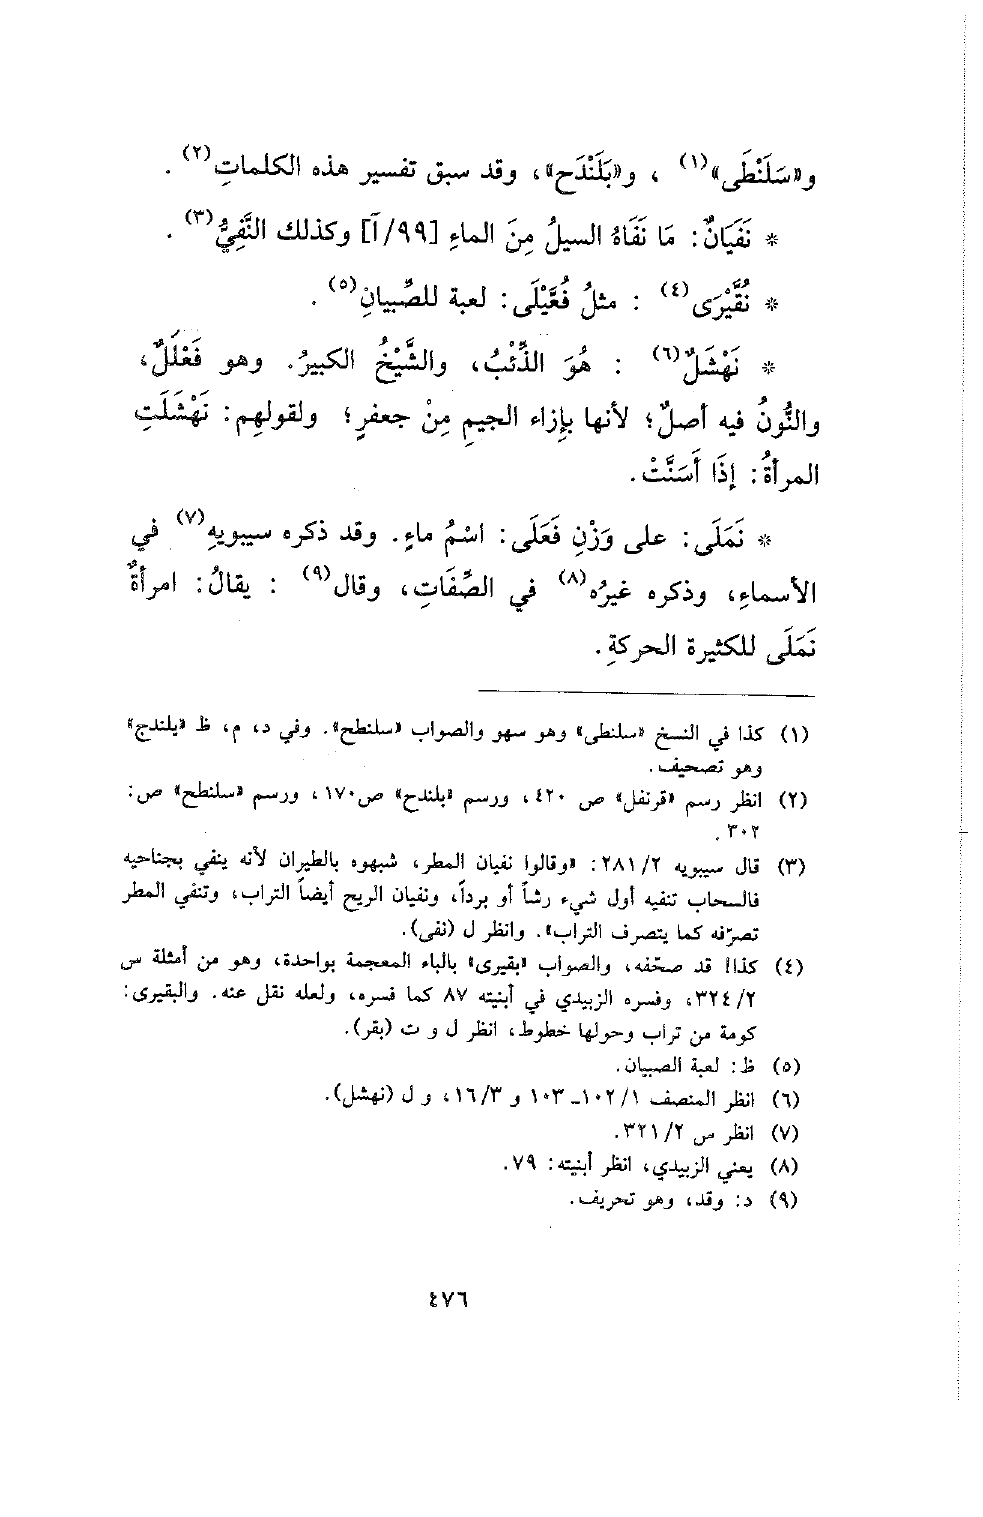 و«سَلَنْطَى»(١) ، و«بَلَنْدَح»، وقد سبق تفسير هذه الكلماتِ(٢) .
* نَفَيَانٌ: مَا نَفَاهُ السيلُ مِنَ الماءِ [٩٩/آ] وكذلك النَّفِيُّ(٣) .
* نُقَّيْرَى(٤) : مثلُ فُعَّيْلَى: لعبة للصِّبيانِ(٥) .
* نَهْشَلٌ(٦) : هُوَ الذِّئْبُ، والشَّيْخُ الكبيرُ. وهو فَعْلَلٌ،
والنُّونُ فيه أصلٌ؛ لأنها بإزاء الجيمِ مِنْ جعفرٍ؛ ولقولهِم: نَهْشَلَتِ
المرأةُ: إذَا أَسَنَّتْ.
* نَمَلَى: على وَزْنِ فَعَلَى: اسْمُ ماءٍ. وقد ذكره سيبويهِ(٧) في
الأسماءِ، وذكره غيرُه(٨) في الصِّفَاتِ، وقال(٩) : يقالُ: امرأةٌ
نَمَلَى للكثيرة الحركةِ.
(١) كذا في النسخ «سلنطى» وهو سهو والصواب «سلنطح». وفي د، م، ظ «يلندج»
وهو تصحيف.
(٢) انظر رسم «قرنفل» ص ٤٢٠، ورسم «بلندح» ص١٧٠، ورسم «سلنطح» ص:
٣٠٢ .
(٣) قال سيبويه ٢٨١/٢: «وقالوا نفيان المطر، شبهوه بالطيران لأنه ينفي بجناحيه
فالسحاب تنفيه أول شيء رشاً أو برداً، ونفيان الريح أيضاً التراب، وتنفي المطر
تصرّفه كما يتصرف التراب». وانظر ل (نفى).
(٤) كذا! قد صحّفه، والصواب «بقيرى» بالباء المعجمة بواحدة، وهو من أمثلة س
٣٢٤/٢، وفسره الزبيدي في أبنيته ٨٧ كما فسره، ولعله نقل عنه. والبقيرى:
كومة من تراب وحولها خطوط، انظر ل و ت (بقر).
(٥) ظ: لعبة الصبيان.
(٦) انظر المنصف ١٠٢/١ـ ١٠٣ و ١٦/٣، و ل (نهشل).
(٧) انظر س ٣٢١/٢.
(٨) يعني الزبيدي، انظر أبنيته: ٧٩.
(٩) د: وقد، وهو تحريف.
٤٧٦